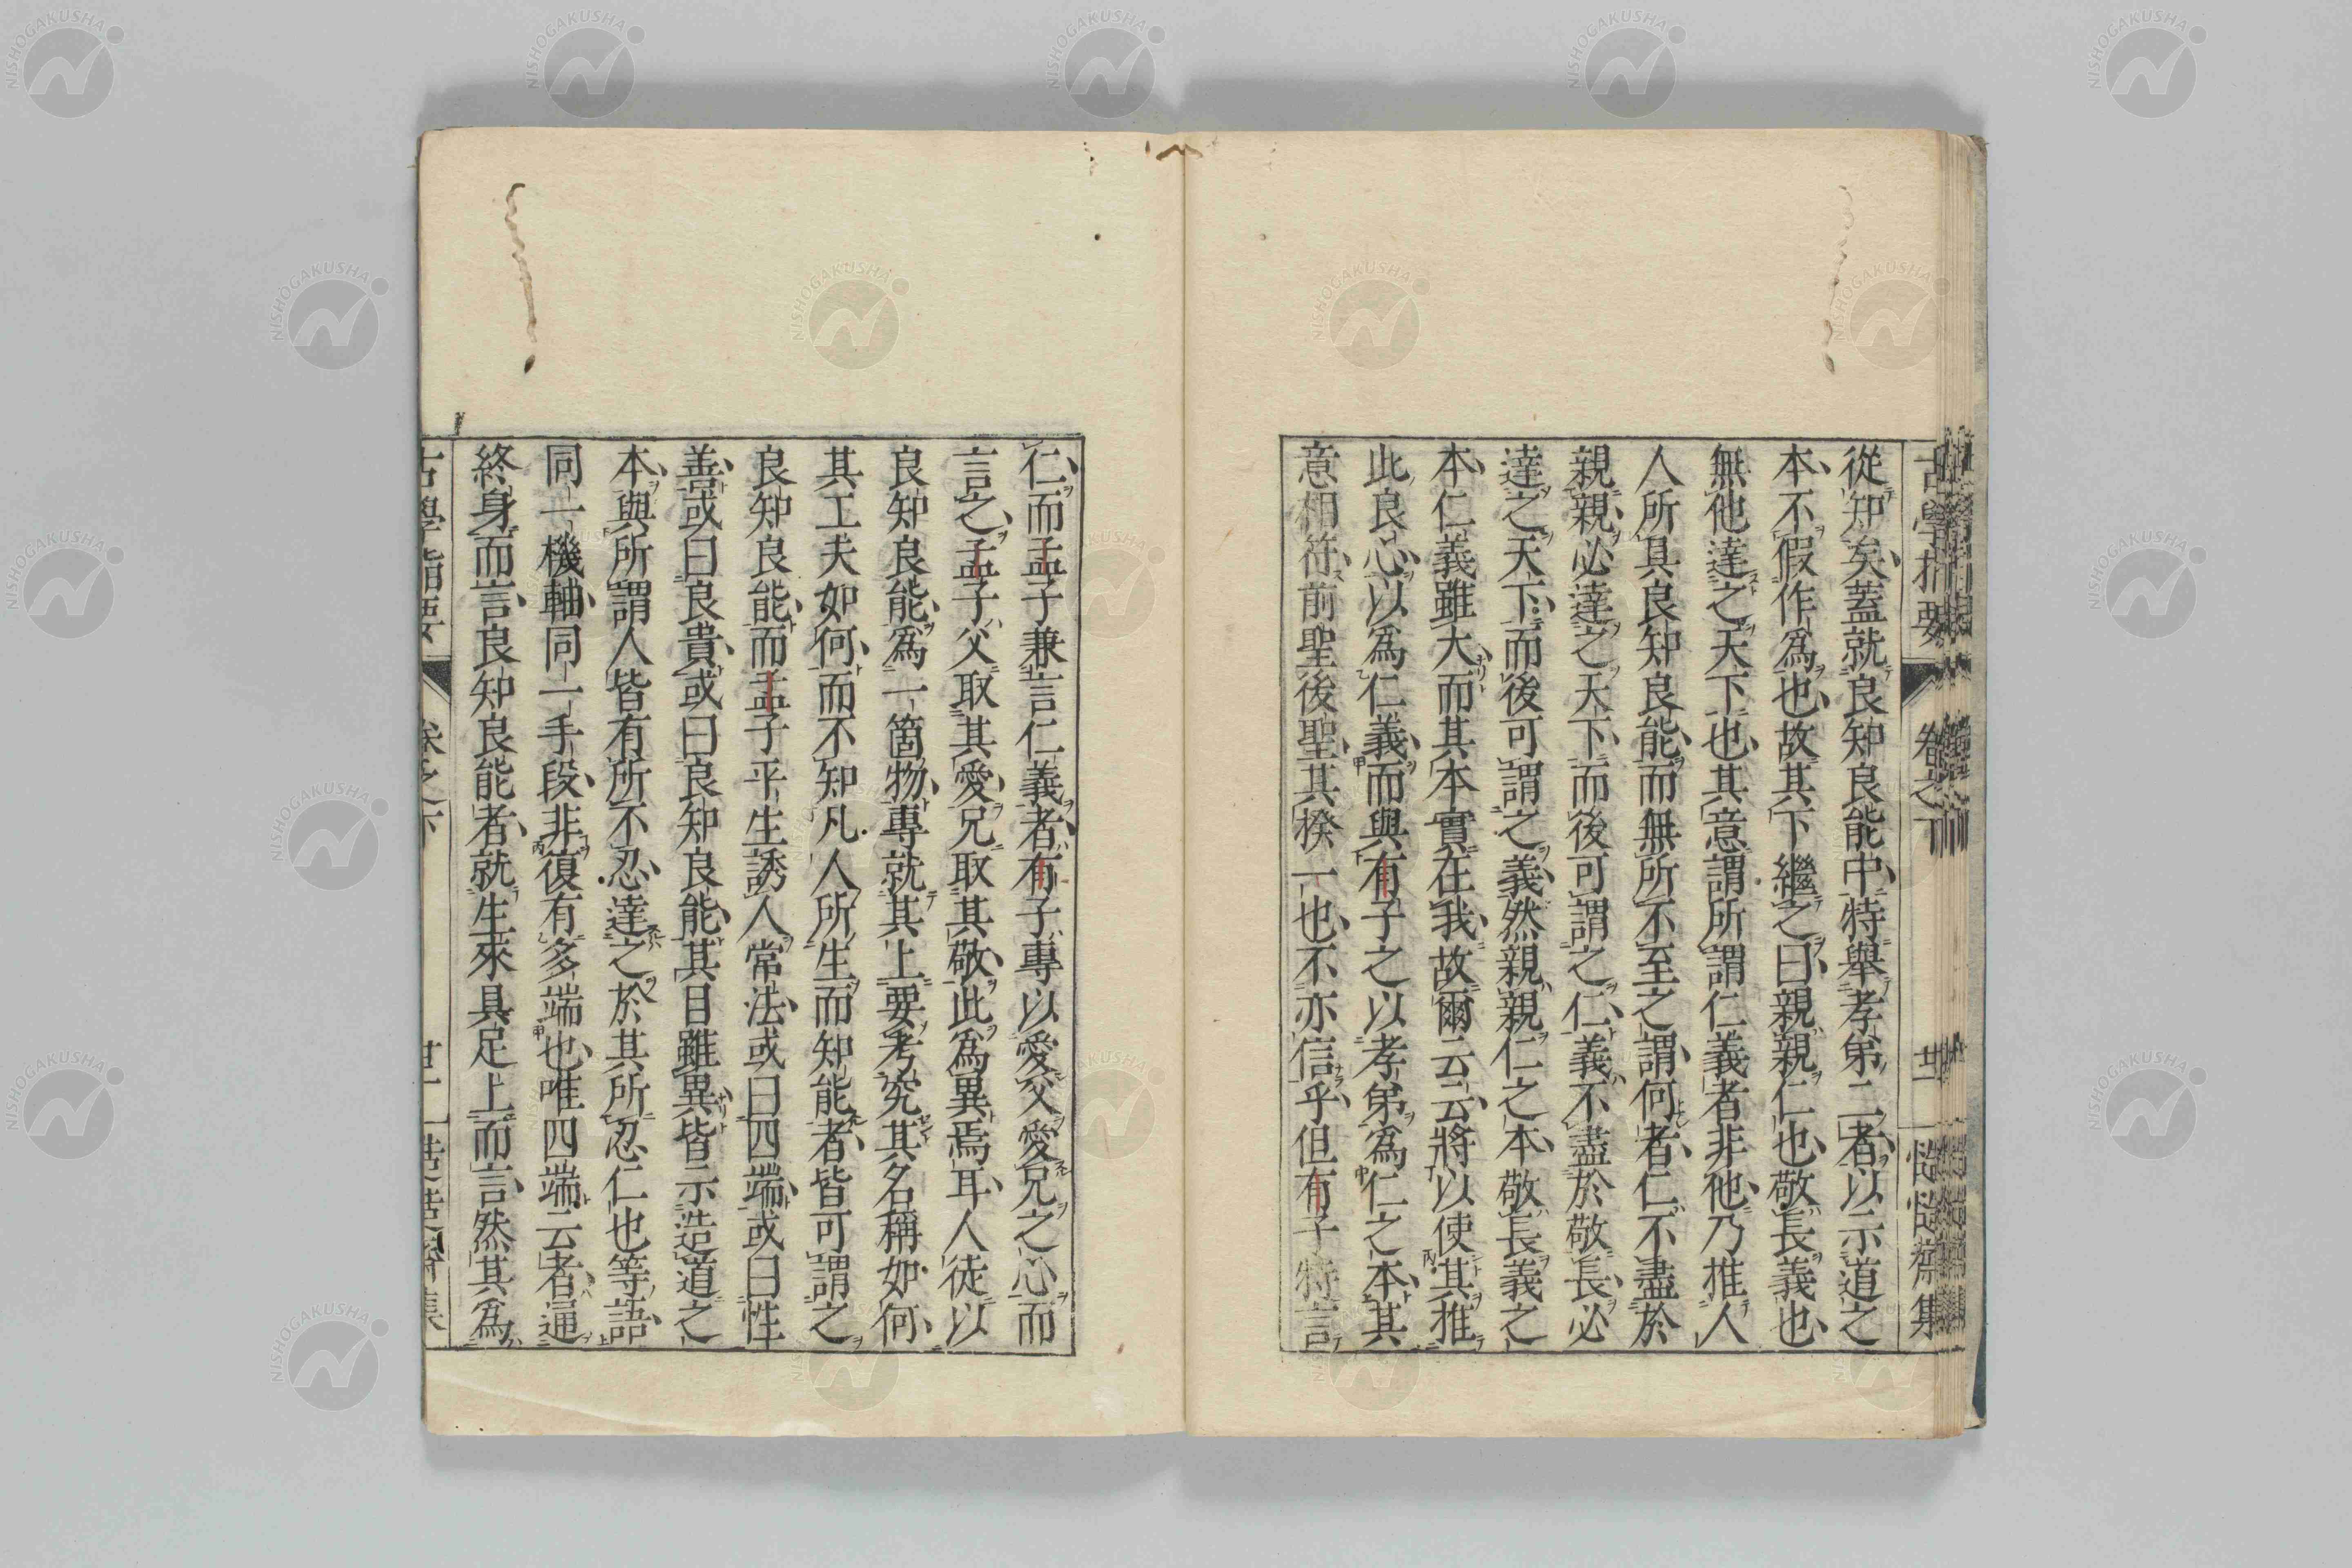 古學指要
卷之下
廿一
慥慥齋集
從知矣蓋就良知良能中特舉孝弟二者以示道之
本不假作爲也故其下繼之曰親親仁也敬長義也
無他達之天下也其意謂所謂仁義者非他乃推人
人所具良知良能而無所不至之謂何者仁不盡於
親親必達之天下而後可謂之仁義不盡於敬長必
達之天下而後可謂之義然親親仁之本敬長義之
本仁義雖大而其本實在我故爾云云將以使其推
此良心以爲仁義而與有子之以孝弟爲仁之本其
意相符前聖後聖其揆一也不亦信乎但有子特言
仁而孟子兼言仁義者有子專以愛父愛兄之心而
言之孟子父取其愛兄取其敬此爲異焉耳人徒以
良知良能爲一箇物專就其上要考究其名稱如何
其工夫如何而不知凡人所生而知能者皆可謂之
良知良能而孟子平生誘人常法或曰四端或曰性
善或曰良貴或曰良知良能其目雖異皆示造道之
本與所謂人皆有所不忍達之於其所忍仁也等語
同一機軸同一手段非復有多端也唯四端云者逼
終身而言良知良能者就生來具足上而言然其爲
古學指要
卷之下
NISHOGAKUSHA